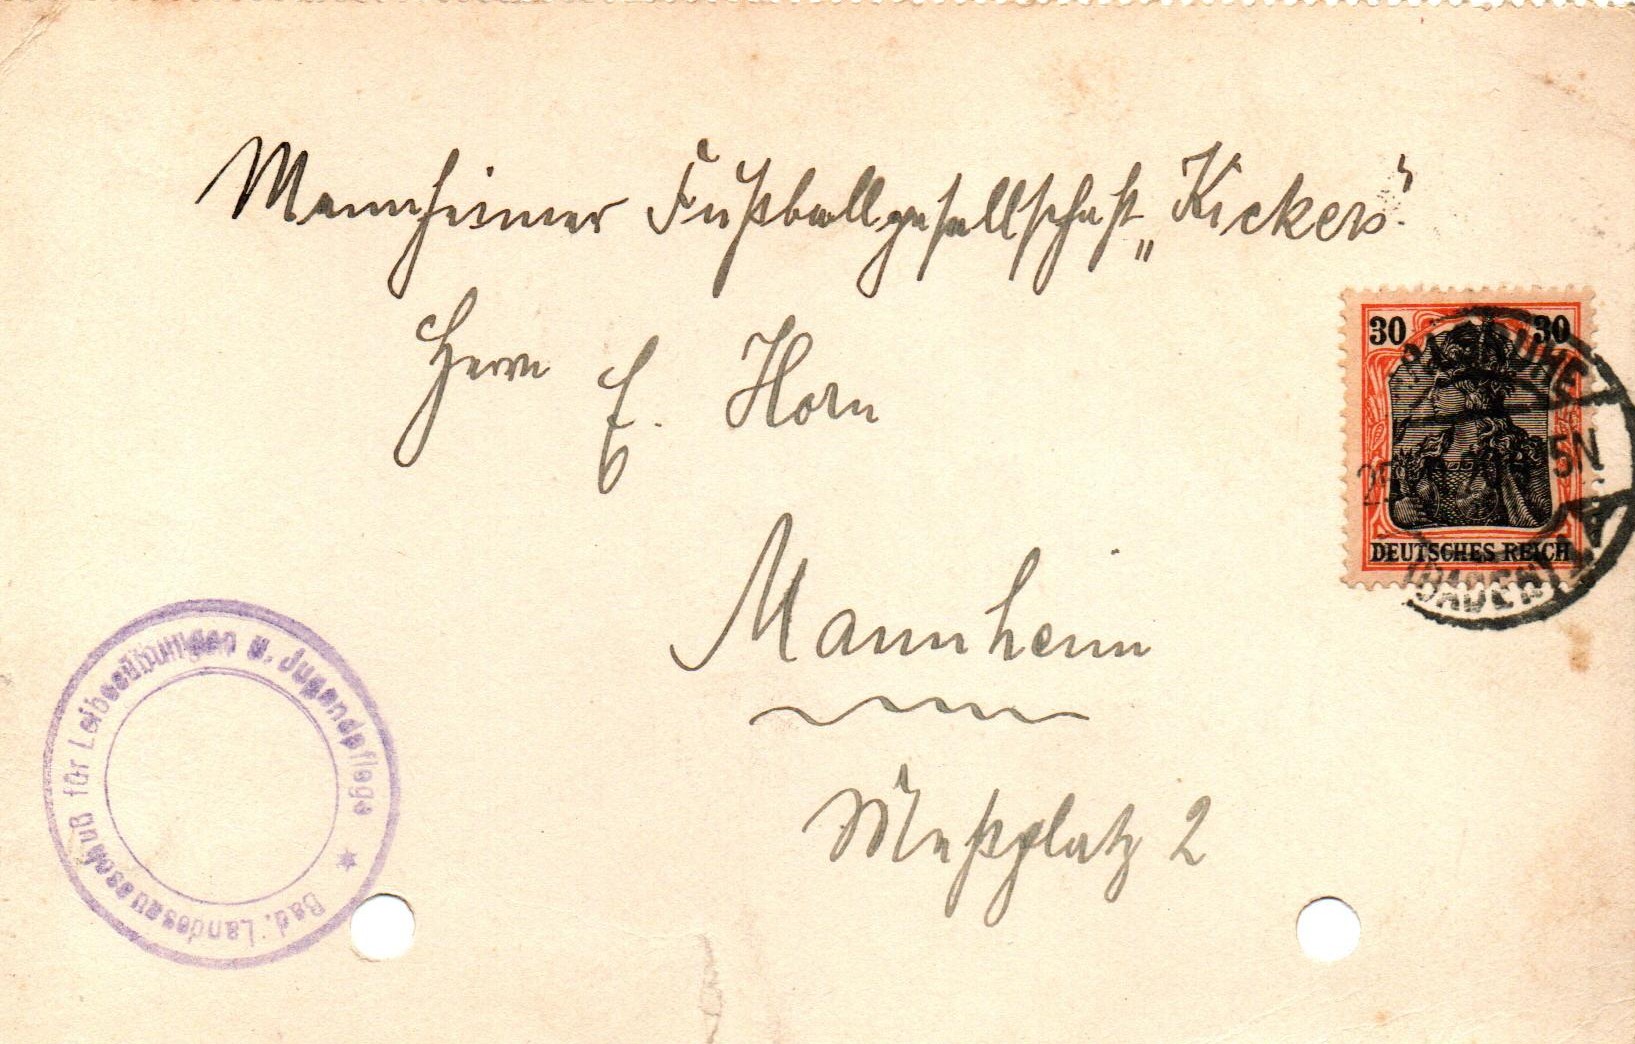 Mannheimer Fußballgesellschaft „Kickers“.
Herrn E. Horn
Mannheim
Meßplatz 2
30 30
DEUTSCHES REICH
KARLSRUHE
5N
(BADEN)
Bad. Landesausschuß für Leibesübungen u. Jugendpflege